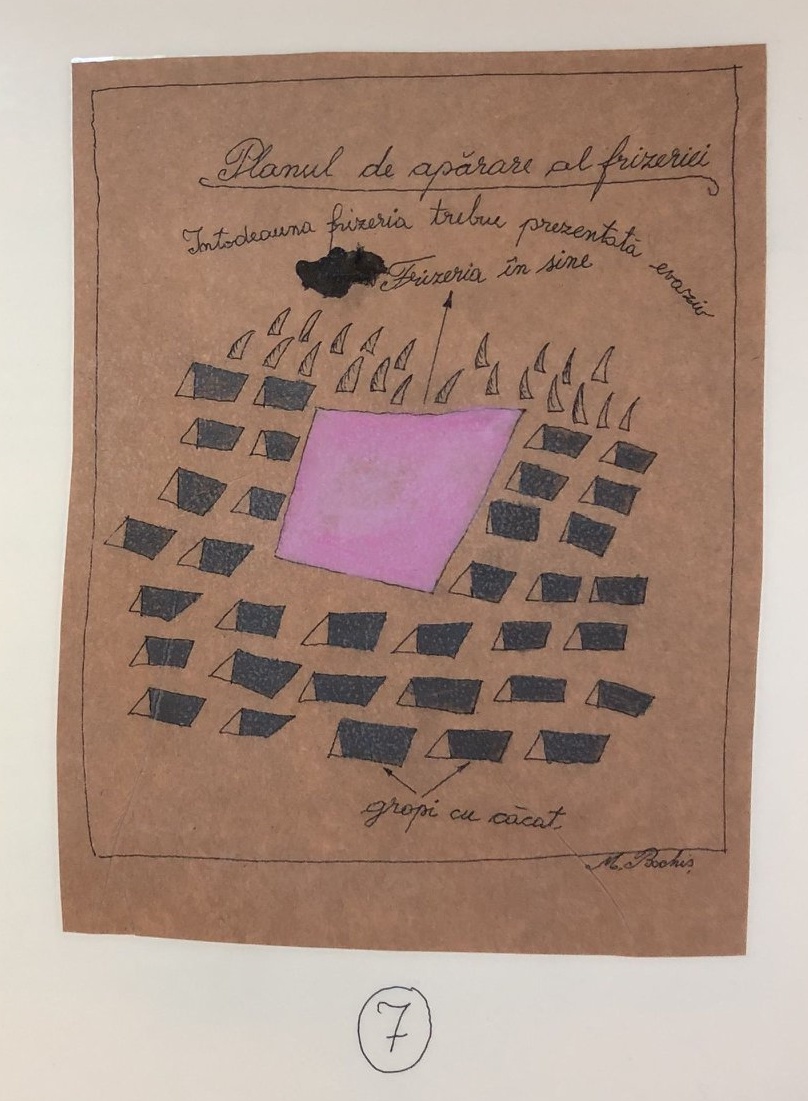 Planul de apărare al frizeriei
Intodeauna frizeria trebue prezentată evaziv
Frizeria în sine
gropi cu căcat
M. Bochiș
7